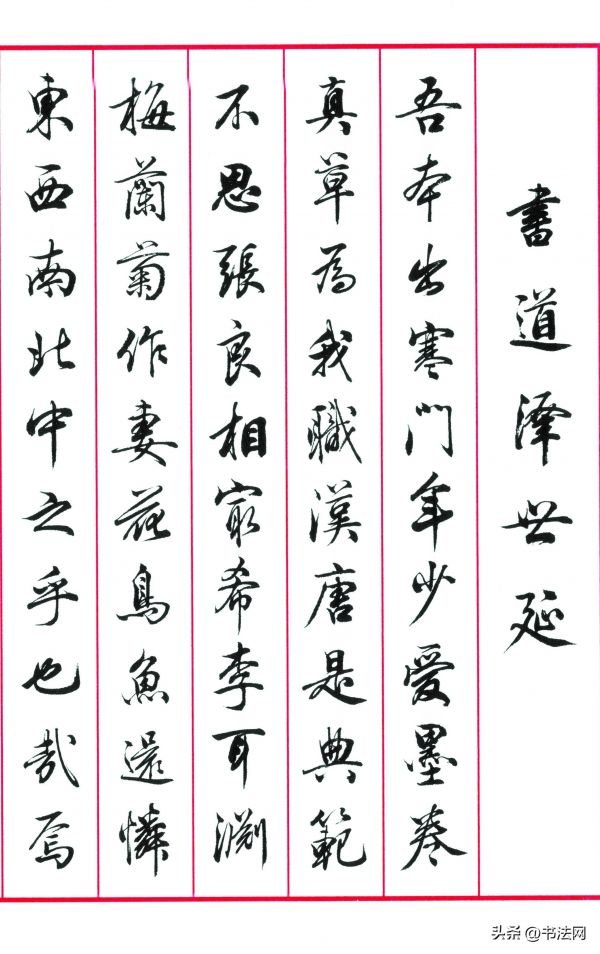 書道澤世延
吾本出寒門年少愛墨卷
真草為我職漢唐是典範
不思張良相最希李耳淵
梅蘭菊作妻花鳥魚還憐
東西南北中之乎也哉焉
头条 @书法网